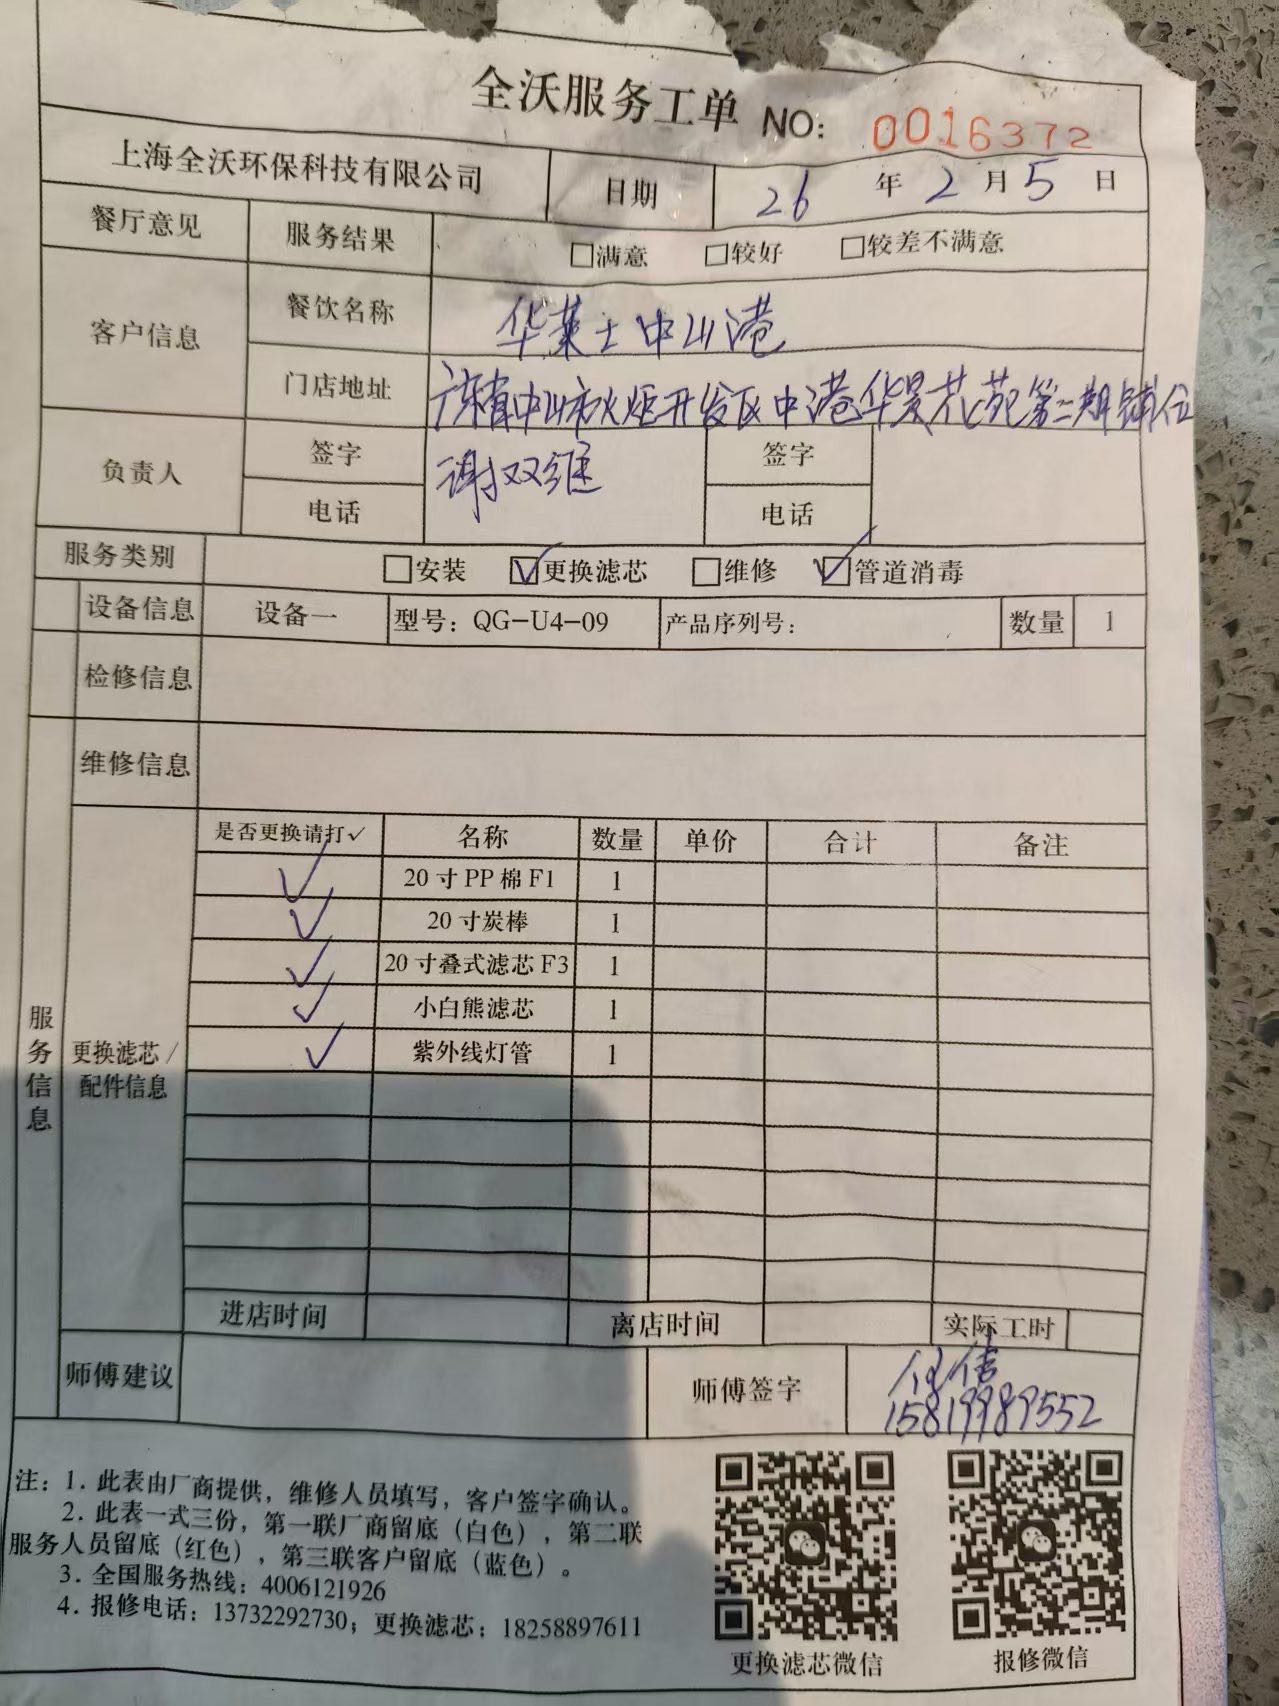 全沃服务工单 NO: 0016372
上海全沃环保科技有限公司 日期 26 年 2 月 5 日
餐厅意见 服务结果 □满意 □较好 □较差不满意
客户信息 餐饮名称 华莱士中山港
门店地址 广东省中山市火炬开发区中港华景花苑第二期铺位
负责人 签字 谢双 签字
电话 电话
服务类别 □安装 ☑更换滤芯 □维修 ☑管道消毒
设备信息 设备一 型号：QG-U4-09 产品序列号： 数量 1
检修信息
维修信息
是否更换请打✓ 名称 数量 单价 合计 备注
✓ 20寸PP棉F1 1
✓ 20寸炭棒 1
✓ 20寸叠式滤芯F3 1
✓ 小白熊滤芯 1
✓ 紫外线灯管 1
服务信息
更换滤芯/
配件信息
进店时间 离店时间 实际工时
师傅建议 师傅签字
15819989552
注：1. 此表由厂商提供，维修人员填写，客户签字确认。
2. 此表一式三份，第一联厂商留底（白色），第二联
服务人员留底（红色），第三联客户留底（蓝色）。
3. 全国服务热线：4006121926
4. 报修电话：13732292730；更换滤芯：18258897611
更换滤芯微信 报修微信